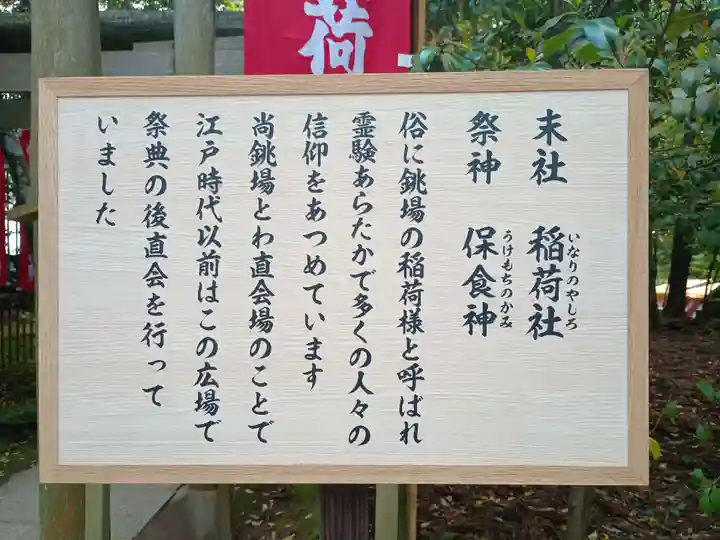 荷
末社 稲荷社
いなりのやしろ
祭神 保食神
うけもちのかみ
俗に銚場の稲荷様と呼ばれ
霊験あらたかで多くの人々の
信仰をあつめています
尚銚場とわ直会場のことで
江戸時代以前はこの広場で
祭典の後直会を行って
いました